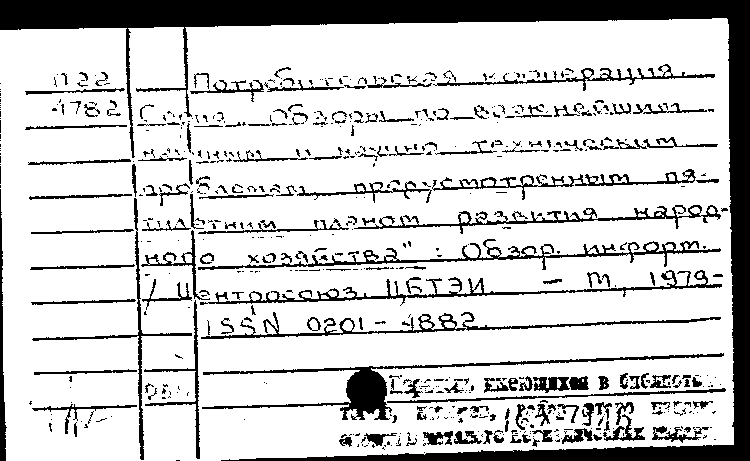 П22 Потребительская кооперация.
4782 Серия „Обзоры по важнейшим
научным и научно-техническим
проблемам, предусмотренным пя-
тилетним планом развития народ-
ного хозяйства" : Обзор. информ.
/ Центросоюз. ЦБТЭИ. – М., 1979-
ISSN 0201-4882.
имеющихся в библиоте
каталоге периодических